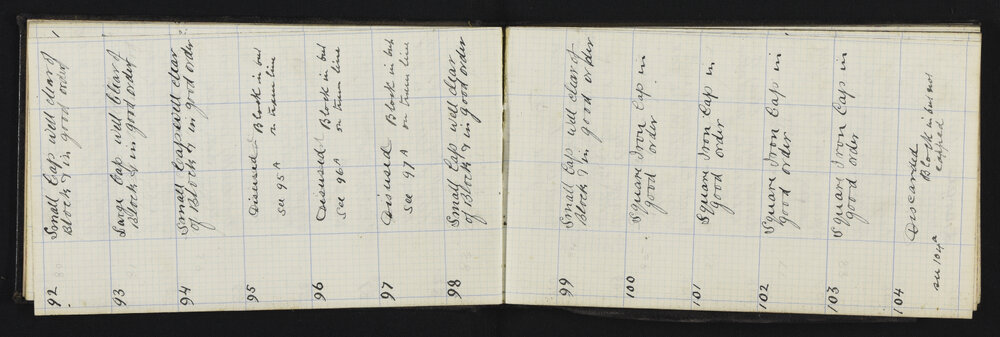 92 Small Cap well clear of
Block & in good order
93 Large Cap well Clear of
Block & in good order
94 Small Cap well clear
of Block & in good order
95 Disused Block in but
see 95A on tram line
96 Disused Block in but
see 96A on tram line
97 Disused Block in but
see 97A on tram line
98 Small Cap well clear
of Block & in good order
99 Small Cap well clear of
Block & in good order
100 Square Iron Cap in
good order
101 Square Iron Cap in
good order
102 Square Iron Cap in
good order
103 Square Iron Cap in
good order
104 Discarded
Block in but not
see 104A capped